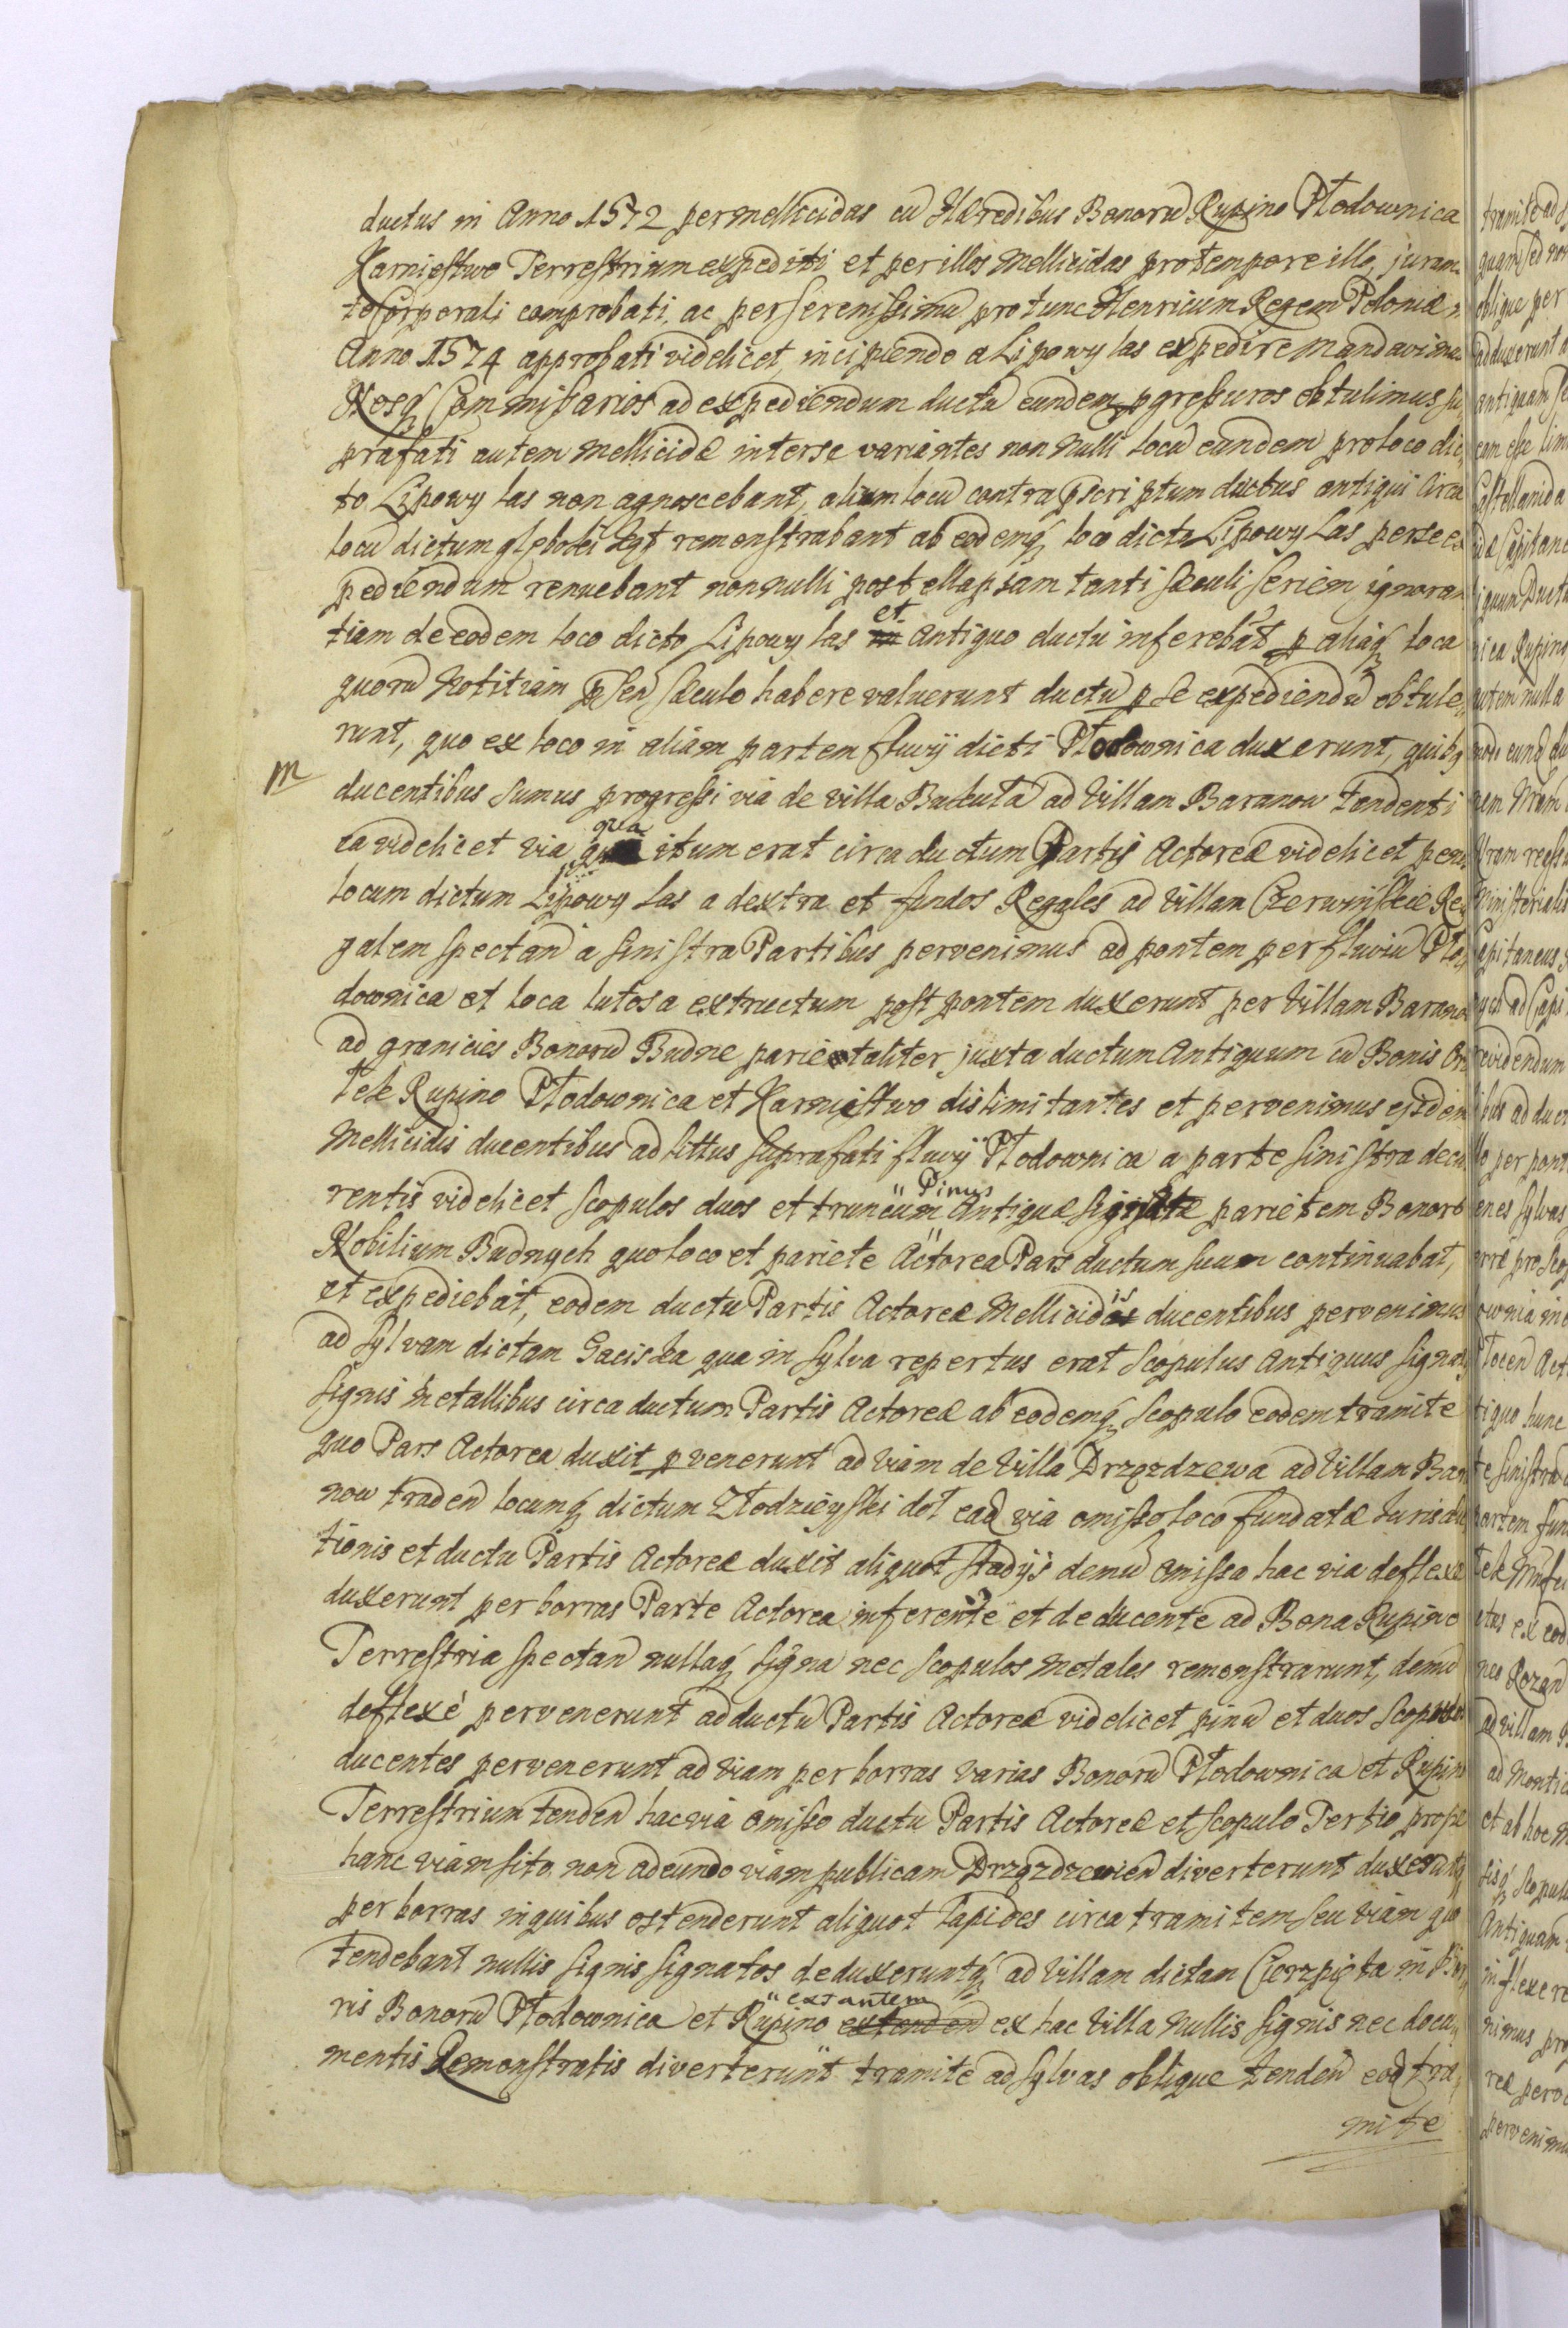 ductus in Anno 1572 per mellicidas cu Hæredibus Bonorũ Rupino Płodownica
Karniestwo Terrestrium expediti et per illos Mellicidas pro tempore illo, juram:
to Corporali comprobati, ac per Serenissimũ pro tunc Henricum Regem Poloniæ
Anno 1574 approbati videlicet, incipiendo a Lipowy las expedire mandavimus
Nosq Commissarios ad expediendum ductũ eundem pgressuros obtulimus su,
prafati autem Mellicidæ inter se variantes non nulli locũ eundem pro loco dic,
to Lipowy las non agnoscebant, alium locũ contra pscriptum ductus antiqui circa
locũ dictum głęboki Ługt remonstrabant ab eodemq loco dicto Lipowy Las per se ex
pediendum renuebant nonnulli post ellapsam tanti sæculi seriem ignoran
tiam de eodem loco dicto Lipowy las et Antiquo ductu inferebãt p aliaq loca
quorũ Notitiam psen sæculo habere valuerunt ductũ p se expediendũ obtule,
runt, quo ex loco in aliam partem fluvij dicti Płodownica duxerunt, quibq
M
ducentibus sumus progressi via de villa Bukuta ad Villam Baranow tendenti
ea videlicet via qua itum erat circa ductum Partis Actoreæ videlicet penes
locum dictum Lipowy Las a dextra et fundos Regales ad Villam Czerwinskie Re,
galem spectan a sinistra Partibus pervenimus ad pontem per fluviũ Pło,
downica et loca lutosa extructum post pontem duxerunt per Villam Barano
ad granicies Bonorũ Budne parietaliter juxta ductum Antiquum cũ Bonis
Rupino Płodownica et Karniestwo dislimitantes et pervenimus ejsdem
Mellicidis ducentibus ad littus suprafati fluvij Płodownica a parte sinistra decu
rentis videlicet scopulos duos et truncum Pinus Antiquæ signatæ parietem Bonorũ
Nobilium Budnych quo loco et pariete Actorea Pars ductum suum continuabat,
et expediebat, eodem ductu Partis Actoreæ Mellicidis ducentibus pervenimus
ad sylvam dictam Gaciska qua in sylva repertus erat scopulus Antiquus signat
signis metallibus circa ductum Partis Actoreæ ab eodemq scopulo eodem tramite
quo Pars Actorea duxit pvenerunt ad viam de Villa Drzązdzewa ad Villam Bara
now traden locumq dictum Złodzieyski doł eaq via omisso loco fundatæ Jurisdic
tionis et ductu Partis Actoreæ duxit aliquot stadijs demũ omissa hac via deflexe
duxerunt per borras Parte Actorea inferente et deducente ad Bona Rupino
Terrestria spectan nullaq signa nec scopulos metales remonstrarunt, demũ
deflexè pervenerunt ad ductũ Partis Actoreæ videlicet pinũ et duos scopulos
ducentes pervenerunt ad viam per borras varias Bonorũ Płodownica et Rupino
Terrestrium tenden hac via omisso ductu Partis Actoreæ et scopulo Tertio prope
hanc viam sito non adeundo viam publicam Drzązdzewien diverterunt duxerutq
per borras in quibus ostenderunt aliquot Lapides circa tramitem seu viam qua
tendebant nullis signis signatos deduxeruntq ad Villam dictam Cierzpięta in
ris Bonorũ Płodownica et Rupino extantem ex hac Villa nullis signis nec docu,
mentis Remonstratis diverterunt tramite ad sylvas oblique tenden eoq tra,
mite